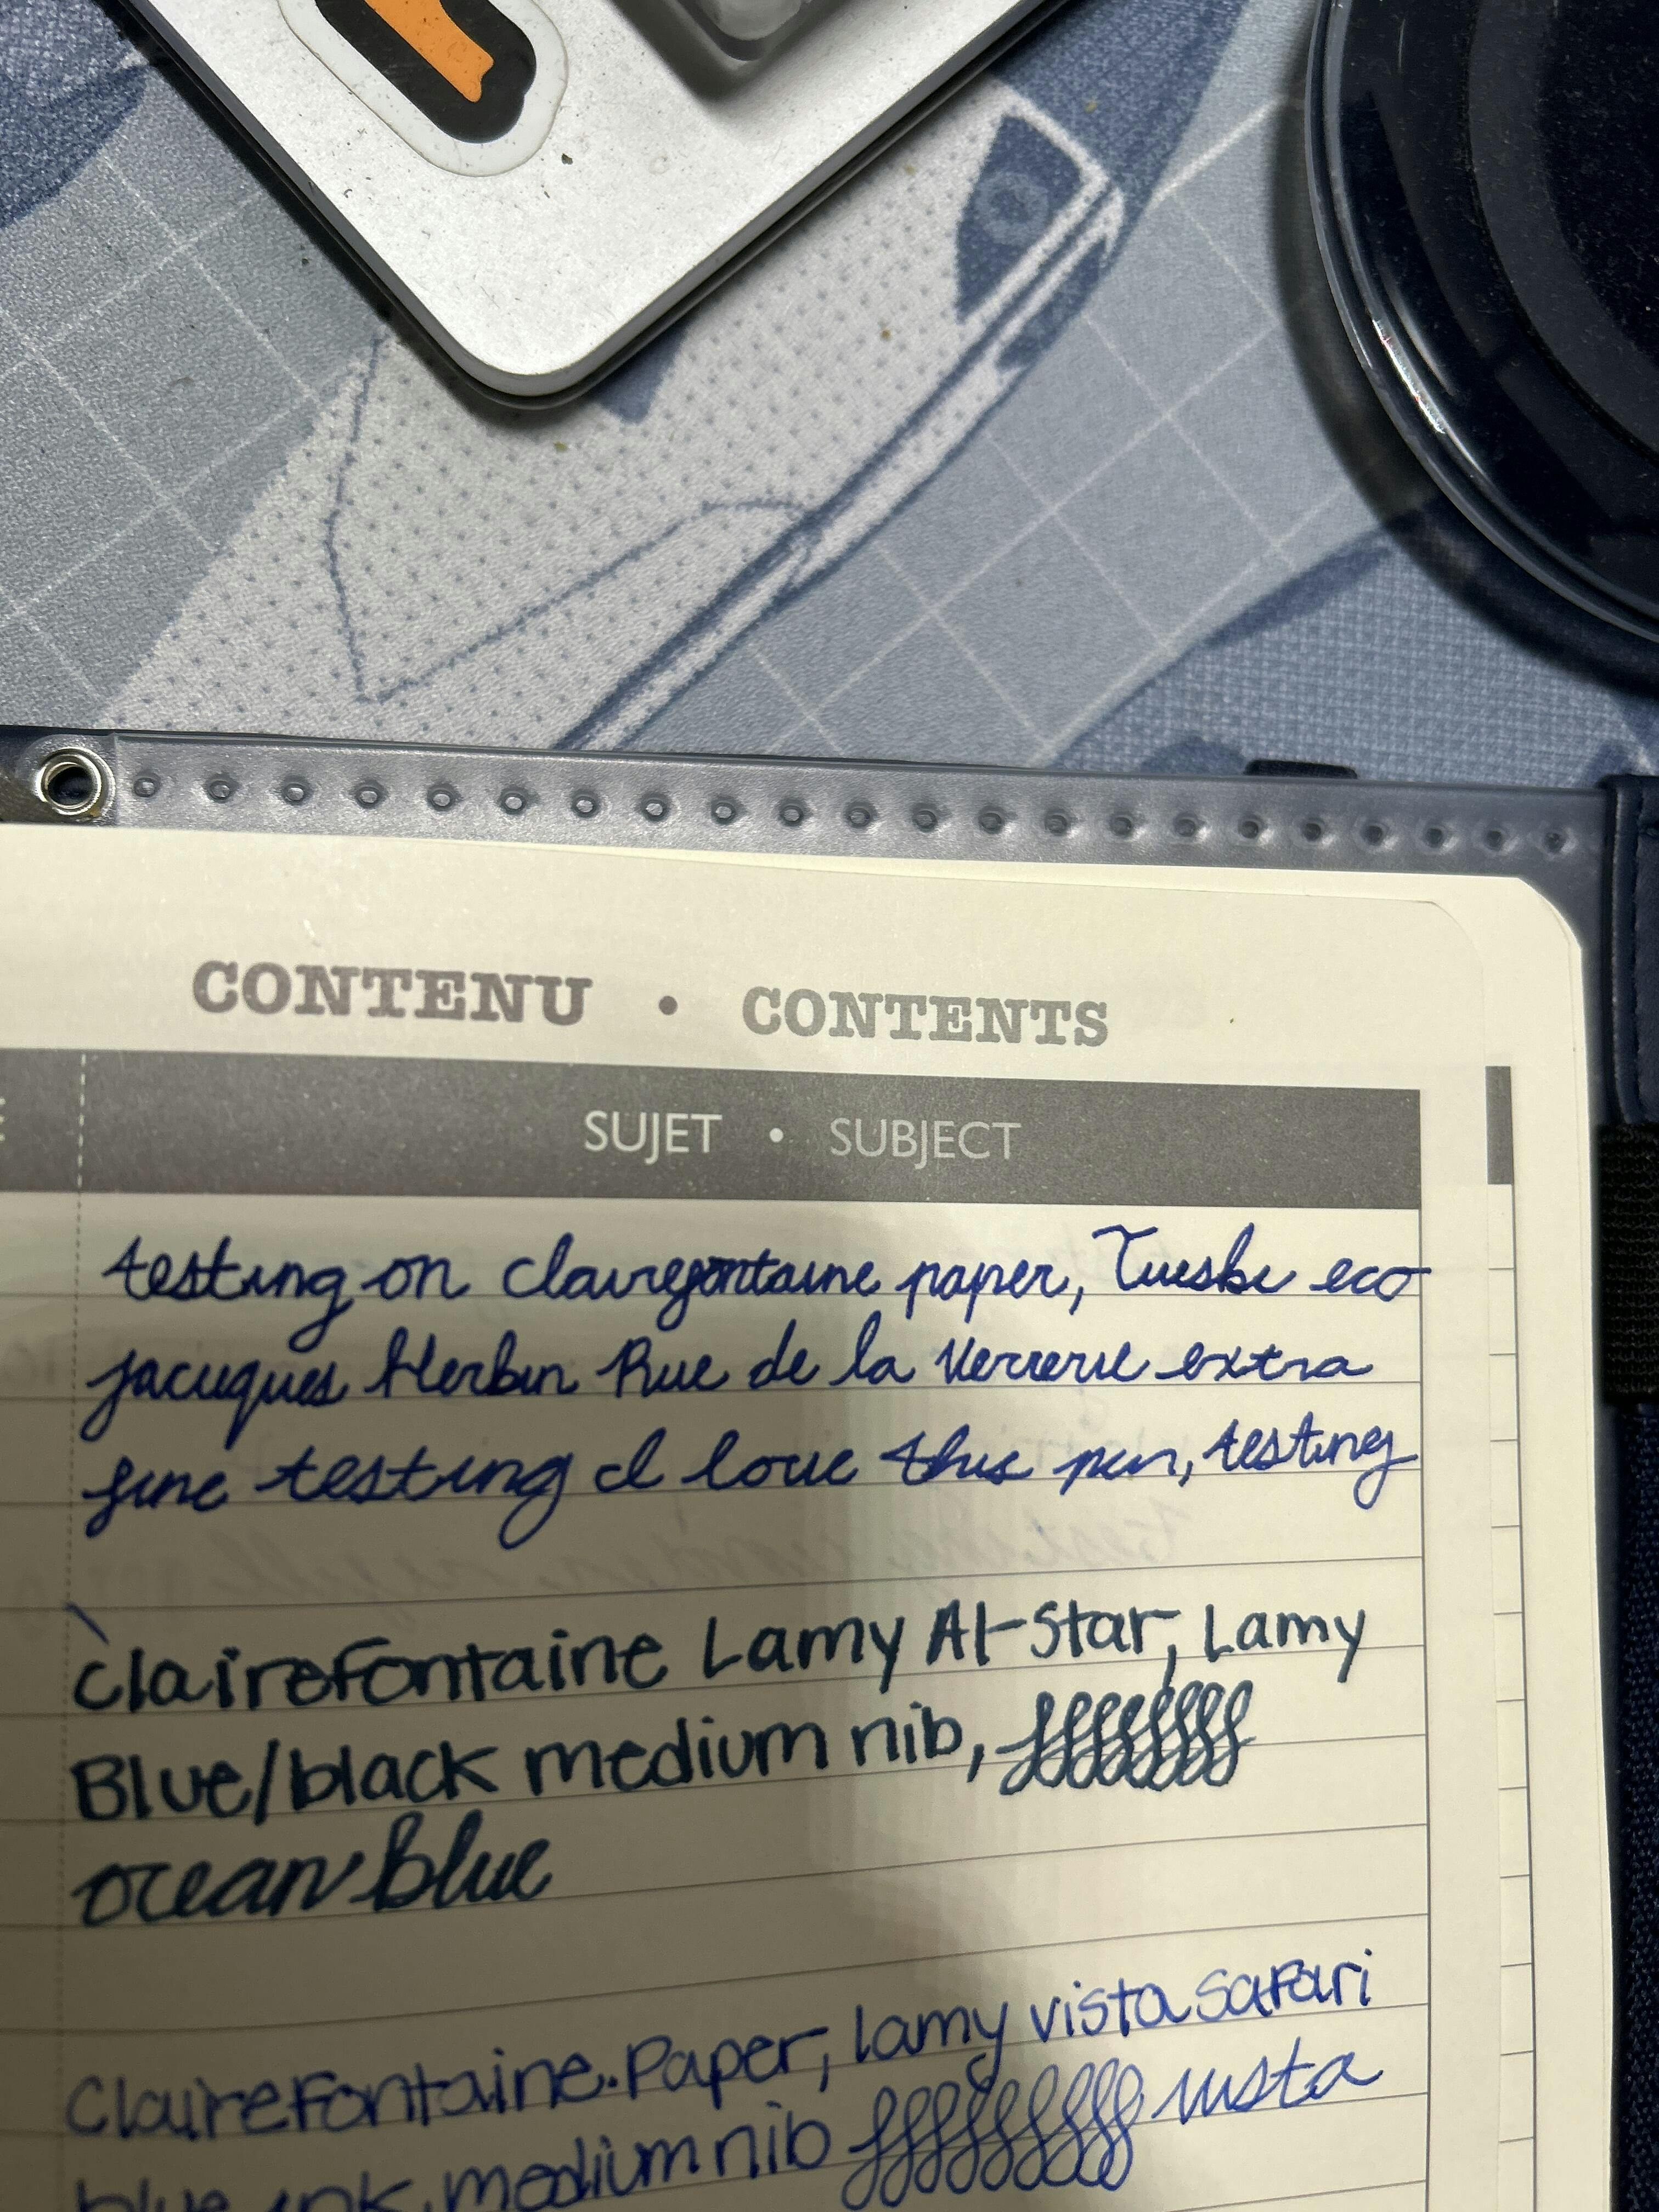 CONTENU • CONTENTS
SUJET • SUBJECT
testing on clairefontaine paper, Twsbi eco
jacuques Herbin Rue de la Verrerie extra
fine testing I love this pen, testing
Clairefontaine Lamy Al-Star, Lamy
Blue/black medium nib,
ocean Blue
Clairefontaine. Paper, lamy vista safari
blue ink, medium nib vista